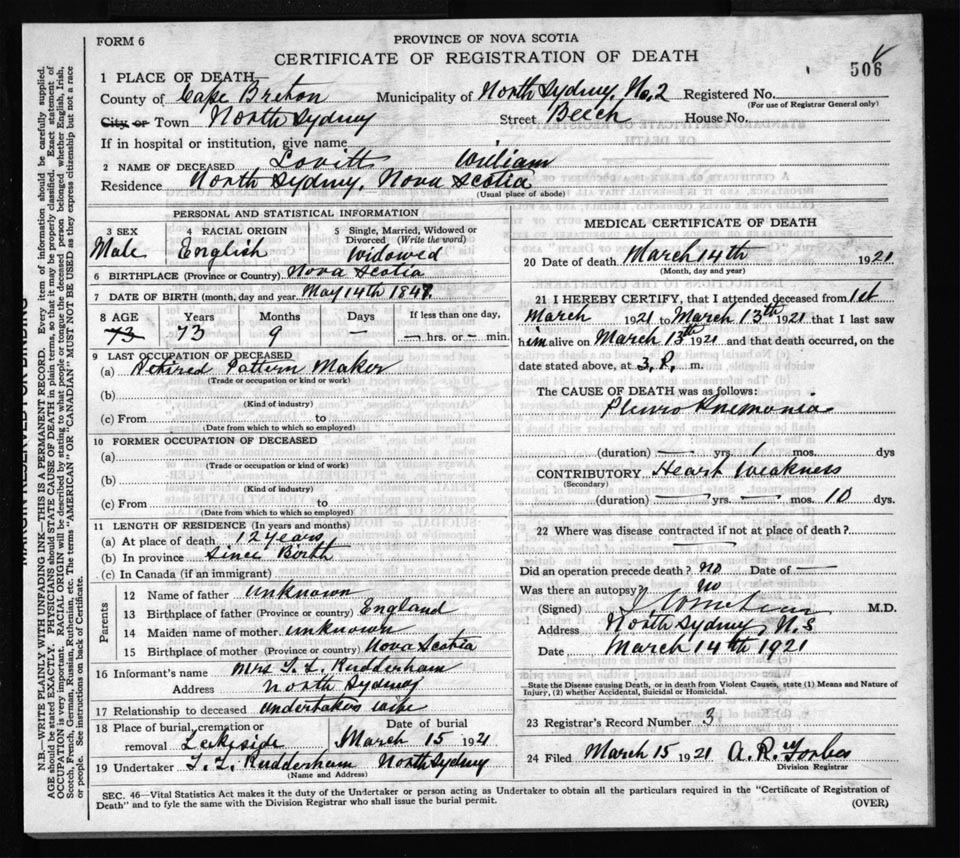 FORM 6
PROVINCE OF NOVA SCOTIA
CERTIFICATE OF REGISTRATION OF DEATH
506
1 PLACE OF DEATH—
County of Cape Breton Municipality of North Sydney, No. 2 Registered No.
(For use of Registrar General only)
City or Town North Sydney Street Beech House No.
If in hospital or institution, give name
2 NAME OF DECEASED Lovitt William
Residence North Sydney, Nova Scotia
(Usual place of abode)
PERSONAL AND STATISTICAL INFORMATION
3 SEX 4 RACIAL ORIGIN 5 Single, Married, Widowed or Divorced (Write the word)
Male English Widowed
6 BIRTHPLACE (Province or Country) Nova Scotia
7 DATE OF BIRTH (month, day and year) May 14th 1847.
8 AGE Years Months Days If less than one day,
73 73 9 — — hrs. or — min.
9 LAST OCCUPATION OF DECEASED
(a) Retired Pattern Maker
(Trade or occupation or kind or work)
(b)
(Kind of industry)
(c) From to
(Date from which to which so employed)
10 FORMER OCCUPATION OF DECEASED
(a)
(Trade or occupation or kind or work)
(b)
(Kind of industry)
(c) From to
(Date from which to which so employed)
11 LENGTH OF RESIDENCE (In years and months)
(a) At place of death 12 Years
(b) In province Since Birth
(c) In Canada (if an immigrant)
Parents
12 Name of father unknown
13 Birthplace of father (Province or country) England
14 Maiden name of mother unknown
15 Birthplace of mother (Province or country) Nova Scotia
16 Informant's name Mrs T. L. Rudderham
Address North Sydney
17 Relationship to deceased undertakers wife
18 Place of burial, cremation or removal Lakeside Date of burial March 15 1921
19 Undertaker T. L. Rudderham North Sydney
(Name and Address)
MEDICAL CERTIFICATE OF DEATH
20 Date of death March 14th 1921
(Month, day and year)
21 I HEREBY CERTIFY, that I attended deceased from 1st
March 1921 to March 13th 1921 that I last saw
him alive on March 13th 1921 and that death occurred, on the
date stated above, at 3. P. m.
The CAUSE OF DEATH was as follows:
Pleuro Pnemonia
(duration) — yrs. 1 mos. dys
CONTRIBUTORY Heart Weakness
(Secondary)
(duration) — yrs. — mos. 10 dys.
22 Where was disease contracted if not at place of death? —
Did an operation precede death? no Date of —
Was there an autopsy? no
(Signed) M.D.
Address North Sydney, N.S
Date March 14th 1921
State the Disease causing Death, or in death from Violent Causes, state (1) Means and Nature of
Injury, (2) whether Accidental, Suicidal or Homicidal.
23 Registrar's Record Number 3
24 Filed March 15 1921 A. R. Forbes
Division Registrar
SEC. 46—Vital Statistics Act makes it the duty of the Undertaker or person acting as Undertaker to obtain all the particulars required in the "Certificate of Registration of
Death" and to fyle the same with the Division Registrar who shall issue the burial permit.
(OVER)
MARGIN RESERVED FOR BINDING
N.B.—WRITE PLAINLY WITH UNFADING INK—THIS IS A PERMANENT RECORD. Every item of information should be carefully supplied.
AGE should be stated EXACTLY. PHYSICIANS should STATE CAUSE OF DEATH in plain terms, so that it may be properly classified. Exact statement of
OCCUPATION is very important. RACIAL ORIGIN will be described by stating to what people or tongue the deceased person belonged whether English, Irish,
Scotch, French, German, Russian, Ruthenian, etc. The terms "AMERICAN" OR "CANADIAN" MUST NOT BE USED as they express citizenship but not a race
or people. See instructions on back of Certificate.